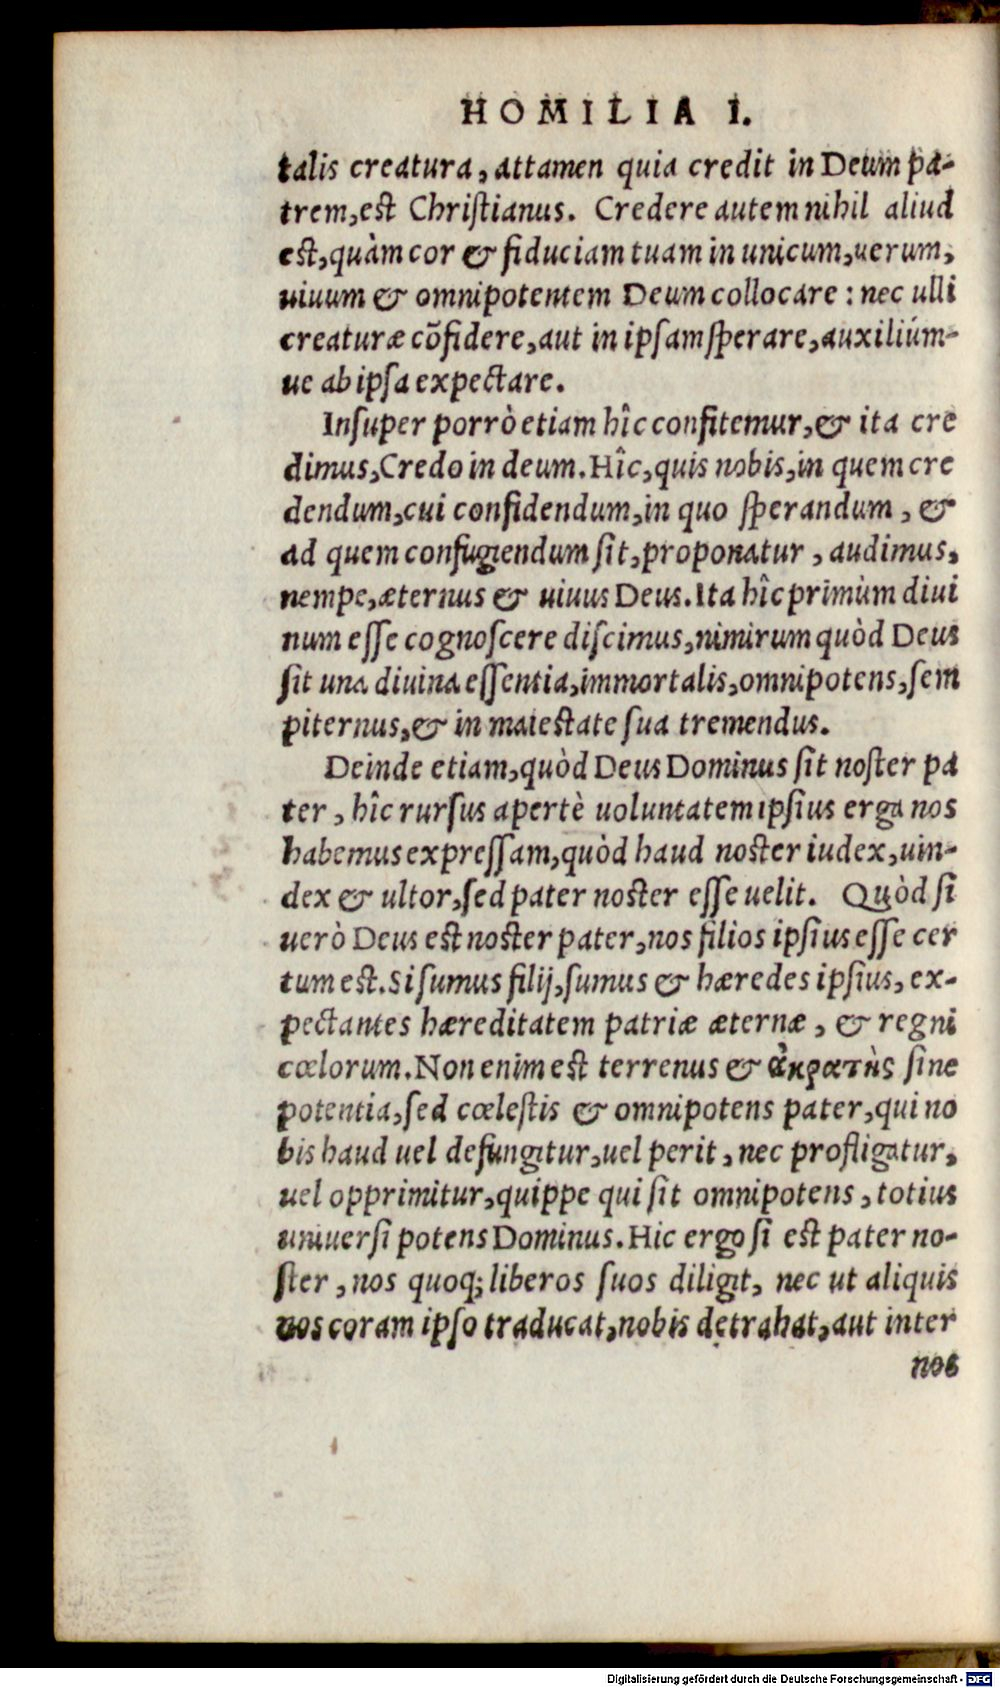 HOMILIA I.
talis creatura, attamen quia credit in Deum pa-
trem, est Christianus. Credere autem nihil aliud
est, quàm cor & fiduciam tuam in unicum, uerum,
uiuum & omnipotentem Deum collocare: nec ulli
creaturæ cõfidere, aut in ipsam sperare, auxiliúm-
ue ab ipsa expectare.
Insuper porrò etiam hîc confitemur, & ita cre
dimus, Credo in deum. Hîc, quis nobis, in quem cre
dendum, cui confidendum, in quo sperandum, &
ad quem confugiendum sit, proponatur, audimus,
nempe, æternus & uiuus Deus. Ita hîc primùm diui
num esse cognoscere discimus, nimirum quòd Deus
sit una diuina essentia, immortalis, omnipotens, sem
piternus, & in maiestate sua tremendus.
Deinde etiam, quòd Deus Dominus sit noster pa
ter, hîc rursus apertè uoluntatem ipsius erga nos
habemus expressam, quòd haud noster iudex, uin-
dex & ultor, sed pater noster esse uelit. Quòd si
uerò Deus est noster pater, nos filios ipsius esse cer
tum est. Si sumus filij, sumus & hæredes ipsius, ex-
pectantes hæreditatem patriæ æternæ, & regni
cœlorum. Non enim est terrenus & ἀκρατὴς sine
potentia, sed cœlestis & omnipotens pater, qui no
bis haud uel defungitur, uel perit, nec profligatur,
uel opprimitur, quippe qui sit omnipotens, totius
uniuersi potens Dominus. Hic ergo si est pater no-
ster, nos quoq; liberos suos diligit, nec ut aliquis
nos coram ipso traducat, nobis detrahat, aut inter
nos
Digitalisierung gefördert durch die Deutsche Forschungsgemeinschaft - DFG